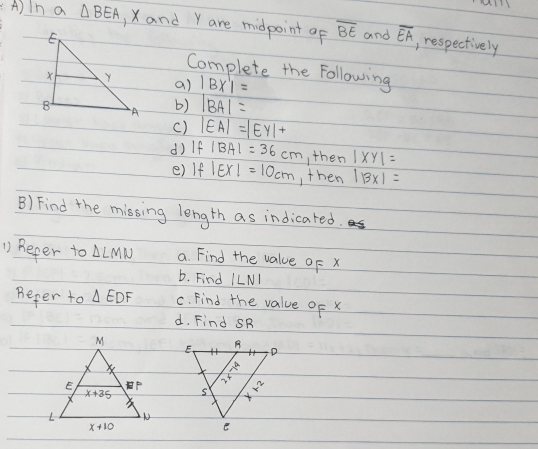 A) In a ΔBEA, X and Y are midpoint of BE and EA, respectively
E
X
Y
B
A
Complete the Following
a) |BX| =
b) |BA| =
c) |EA| = |EY| +
d) If |BA| = 36 cm, then |XY| =
e) If |EX| = 10cm, then |BX| =
B) Find the missing length as indicated.
1) Refer to ΔLMN
a. Find the value of x
b. Find |LN|
Refer to Δ EDF
c. Find the value of x
d. Find SR
M
E
P
x+35
L
N
x+10
E
R
D
S
x+2